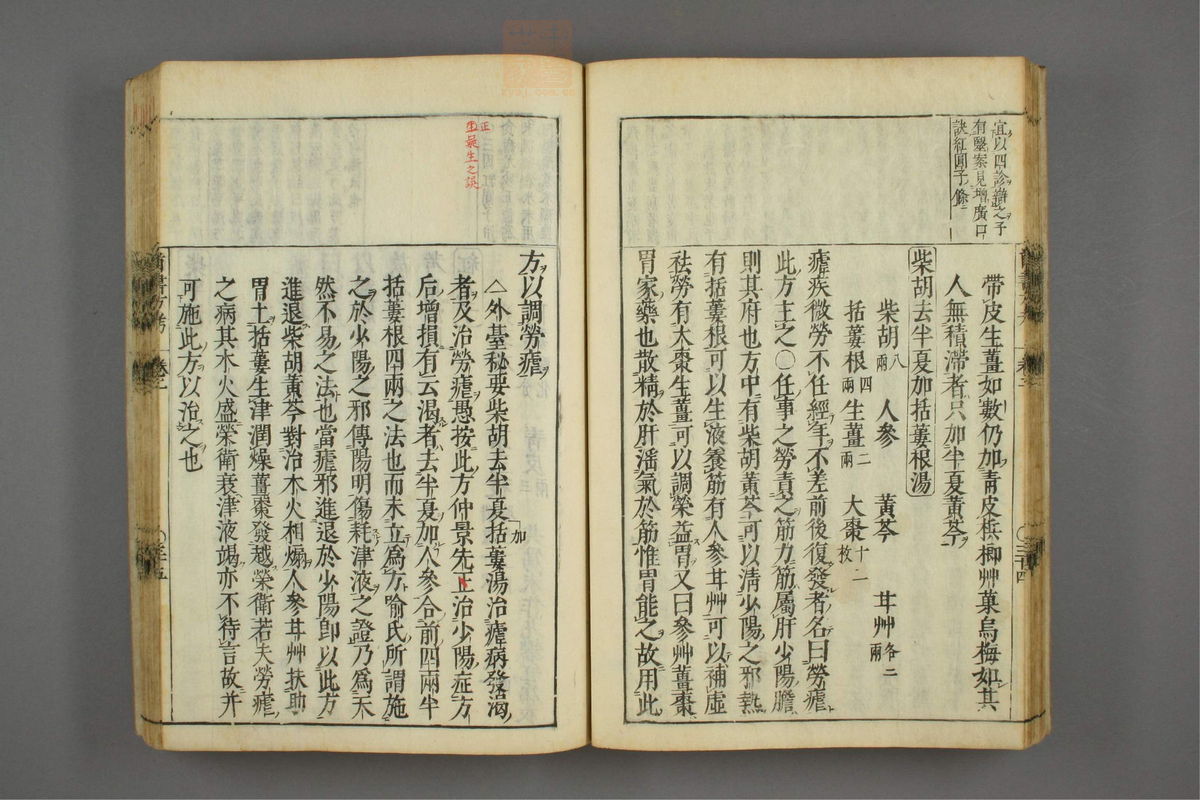 宜以四診辯之予
有醫案見增廣口
訣紅圓子ノ條
帶皮生薑如數仍加靑皮檳榔艸菓烏梅如其
人無積滯者只加半夏黃芩
柴胡去半夏加括蔞根湯
柴胡八兩 人參 黃芩 甘艸各二兩
括蔞根四兩 生薑二兩 大棗十二枚
瘧疾微勞不任經年不差前後復發者名曰勞瘧
此方主之〇任事之勞責之筋力筋屬肝少陽膽
則其府也方中有柴胡黃芩可以淸少陽之邪熱
有括蔞根可以生液養筋有人參甘艸可以補虛
祛勞有大棗生薑可以調榮益胃又曰參艸薑棗
胃家藥也散精於肝滛氣於筋惟胃能之故用此
正
王彙生之誤
方以調勞瘧
△外臺秘要柴胡去半夏加括蔞湯治瘧病發渴
者及治勞瘧愚按此方仲景先正治少陽症方
后增損有云渴者去半夏加人參合前四兩半
括蔞根四兩之法也而未立爲方喻氏所謂施
之於少陽之邪傳陽明傷耗津液之證乃爲天
然不易之法也當瘧邪進退於少陽卽以此方
進退柴胡黃芩對治木火相煽人參甘艸扶助
胃土括蔞生津潤燥薑棗發越榮衛若夫勞瘧
之病其木火盛榮衛衰津液竭亦不待言故并
可施此方以治之也